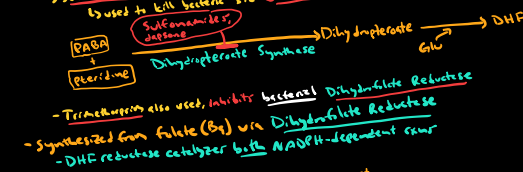 ↳ used to kill bacteria
Sulfonamides,
dapsone
PABA
+
Pteridine
Dihydropteroate Synthase
Dihydropteroate
Glu
DHF
- Trimethoprim also used, inhibits bacterial Dihydrofolate Reductase
- Synthesized from folate (B9) via Dihydrofolate Reductase
- DHF reductase catalyzes both NADPH-dependent rxns